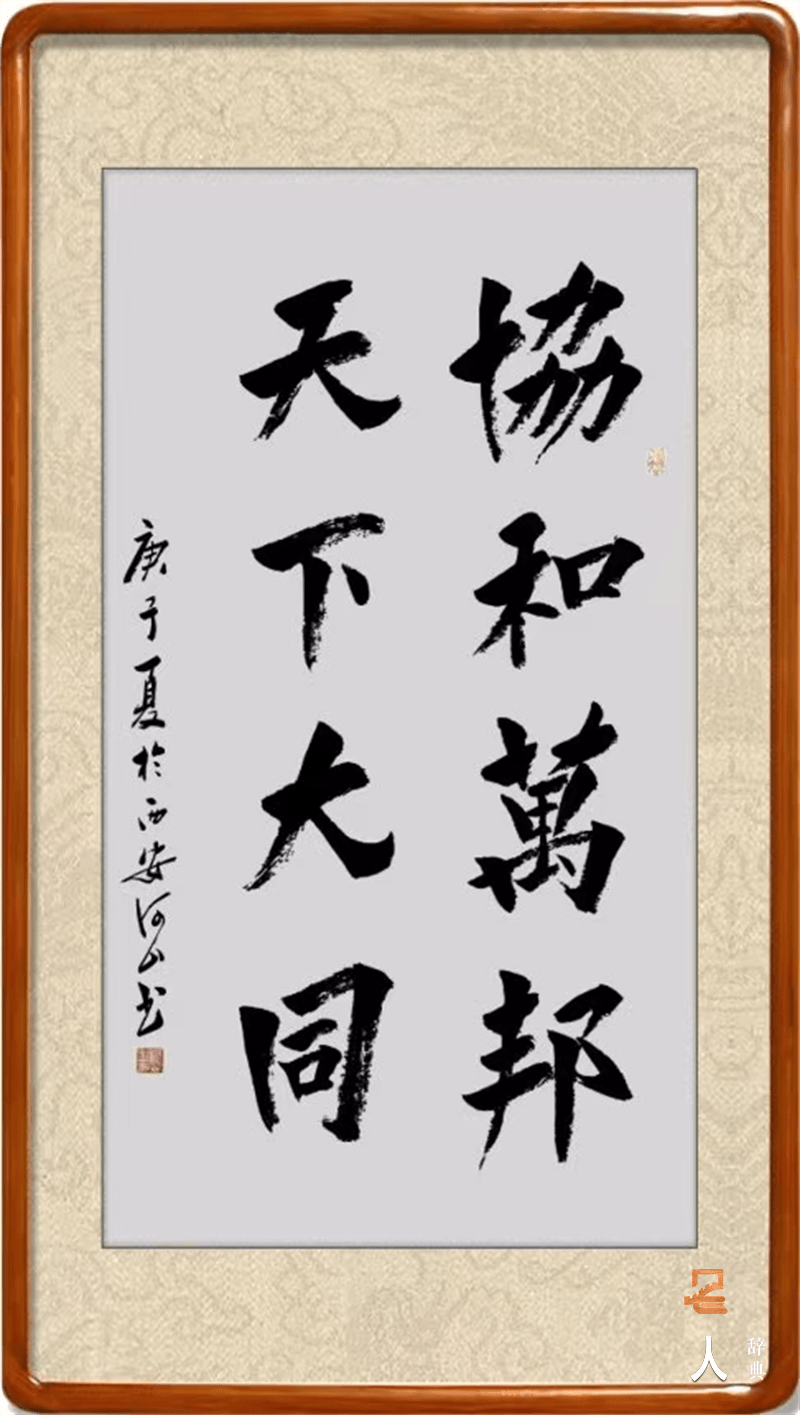 協和萬邦
天下大同
庚子夏於西安河山书
名人
辞典